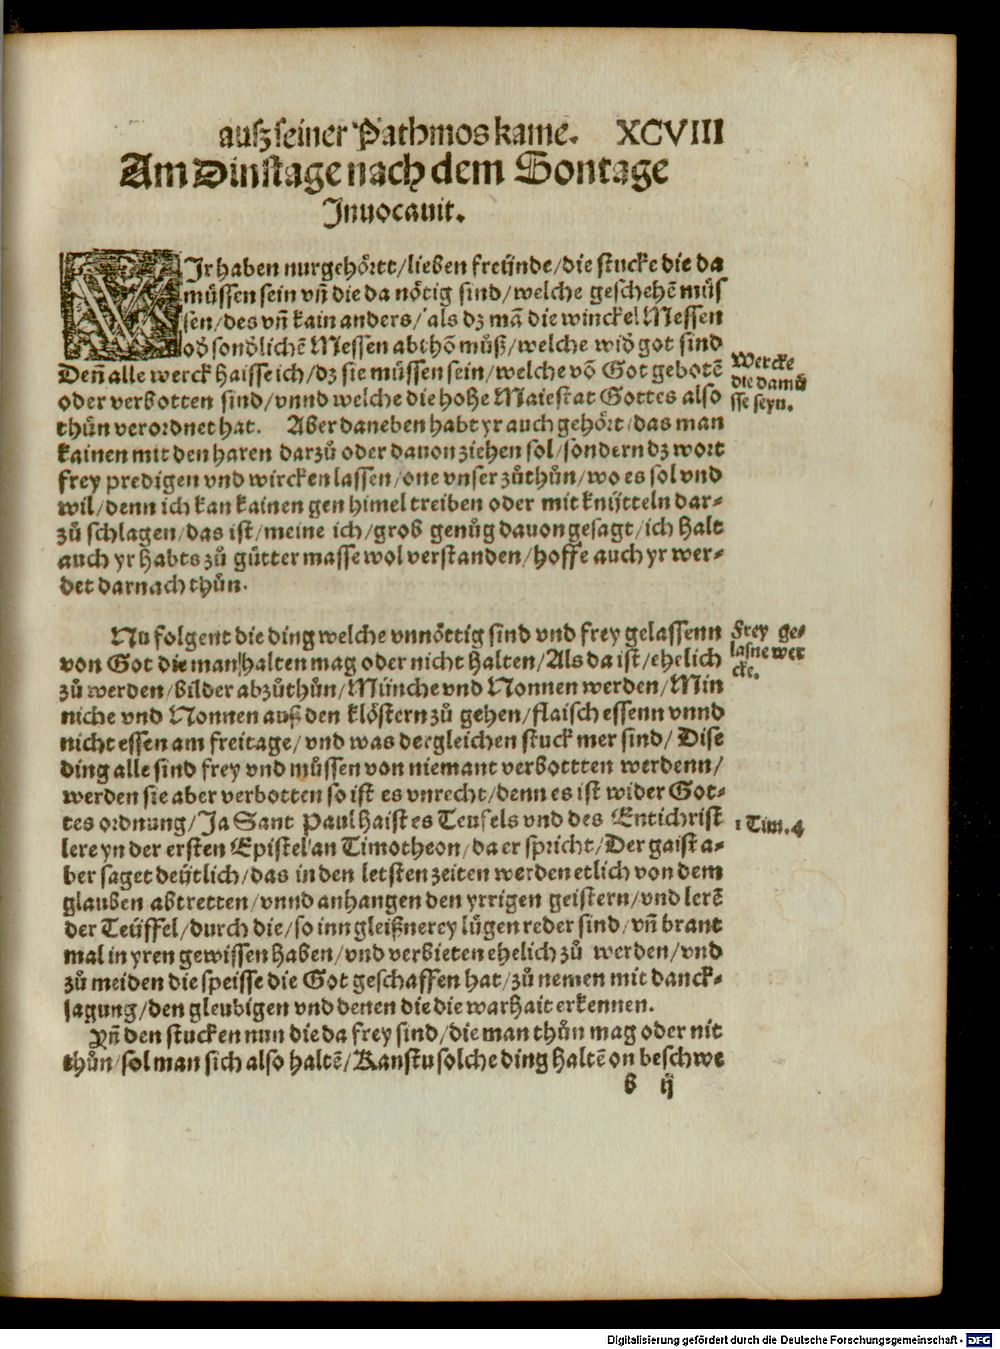 auſz ſeiner Pathmos kame. XCVIII
Am Dinſtage nach dem Sontage
Inuocauit.
WIr haben nur gehörtt/lieben freünde/die ſtucke die da
müſſen ſein vñ die da nötig ſind/welche geſchehẽ müſ
ſen/des vñ kain anders/als dz mã die winckel Meſſen
od̕ ſond̕lichẽ Meſſen abthõ můß/welche wid̕ got ſind
Deñ alle werck haiſſe ich/dz ſie müſſen ſein/welche võ Got gebotẽ
oder verbotten ſind/vnnd welche die hohe Maieſtat Gottes alſo
thůn verordnet hat. Aber daneben habt yr auch gehört/das man
kainen mit den haren darzů oder dauon ziehen ſol/ſondern dz wort
frey predigen vnd wircken laſſen/one vnſer zůthůn/wo es ſol vnd
wil/denn ich kan kainen gen himel treiben oder mit knijtteln dar⸗
zů ſchlagen/das iſt/meine ich/grob genůg dauon geſagt/ich halt
auch yr habts zů gůtter maſſe wol verſtanden/hoffe auch yr wer⸗
det darnach thůn.
Wercke
die da mů
ſſe ſeyn.
Nu folgent die ding welche vnnöttig ſind vnd frey gelaſſenn
von Got die man halten mag oder nicht halten/Als da iſt/ehelich
zů werden/bilder abzůthůn/Münche vnd Nonnen werden/Min
niche vnd Nonnen auß den klöſtern zů gehen/flaiſch eſſenn vnnd
nicht eſſen am freitage/vnd was dergleichen ſtuck mer ſind/Diſe
ding alle ſind frey vnd müſſen von niemant verbottten werdenn/
werden ſie aber verbotten ſo iſt es vnrecht/denn es iſt wider Got⸗
tes ordnung/Ja Sant Paul haiſt es Teufels vnd des Entichriſt
lere yn der erſten Epiſtel an Timotheon/da er ſpricht/Der gaiſt a⸗
ber ſaget deütlich/das in den letſten zeiten werden etlich von dem
glauben abtretten/vnnd anhangen den yrrigen geiſtern/vnd lerẽ
der Teüffel/durch die/ſo inn gleißnerey lügen reder ſind/vñ brant
mal in yren gewiſſen haben/vnd verbieten ehelich zů werden/vnd
zů meiden die ſpeiſſe die Got geſchaffen hat/zů nemen mit danck⸗
ſagung/den gleubigen vnd denen die die warhait erkennen.
Frey ge⸗
laſne wer
cke.
1 Tim. 4
Yñ den ſtucken nun die da frey ſind/die man thůn mag oder nit
thůn/ſol man ſich alſo haltẽ/Kanſtu ſolche ding haltẽ on beſchwe
b ij
Digitalisierung gefördert durch die Deutsche Forschungsgemeinschaft - DFG